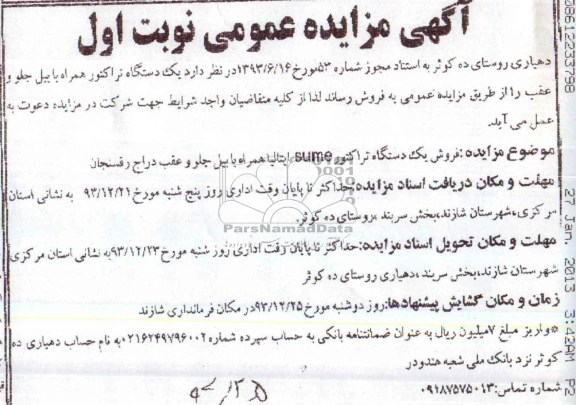 آگهی مزایده عمومی نوبت اول
دهیاری روستای ده کوثر به استناد مجوز شماره ۵۳مورخ ۱۳۹۳/۶/۱۶در نظر دارد یک دستگاه تراکتور همراه با بیل جلو و
عقب را از طریق مزایده عمومی به فروش رساند لذا از کلیه متقاضیان واجد شرایط جهت شرکت در مزایده دعوت به
عمل می آید.
موضوع مزایده :فروش یک دستگاه تراکتور sume ایتالیا همراه با بیل جلو و عقب دراج رفسنجان
مهلت و مکان دریافت اسناد مزایده:حداکثر تا پایان وقت اداری روز پنج شنبه مورخ ۹۳/۱۲/۲۱ به نشانی استان
مرکزی،شهرستان شازند،بخش سربند ،روستای ده کوثر.
مهلت و مکان تحویل اسناد مزایده:حداکثر تا پایان وقت اداری روز شنبه مورخ ۹۳/۱۲/۲۳به نشانی استان مرکزی
شهرستان شازند،بخش سربند ،دهیاری روستای ده کوثر
زمان و مکان گشایش پیشنهادها:روز دوشنبه مورخ ۹۳/۱۲/۲۵در مکان فرمانداری شازند
*واریز مبلغ ۷میلیون ریال به عنوان ضمانتنامه بانکی به حساب سپرده شماره ۰۲۱۶۲۴۹۷۹۶۰۰۲به نام حساب دهیاری ده
کوثر نزد بانک ملی شعبه هندودر
شماره تماس:۰۹۱۸۷۵۷۵۰۱۳
ParsNamadData
08612233798
27 Jan. 2013 3:42AM P2